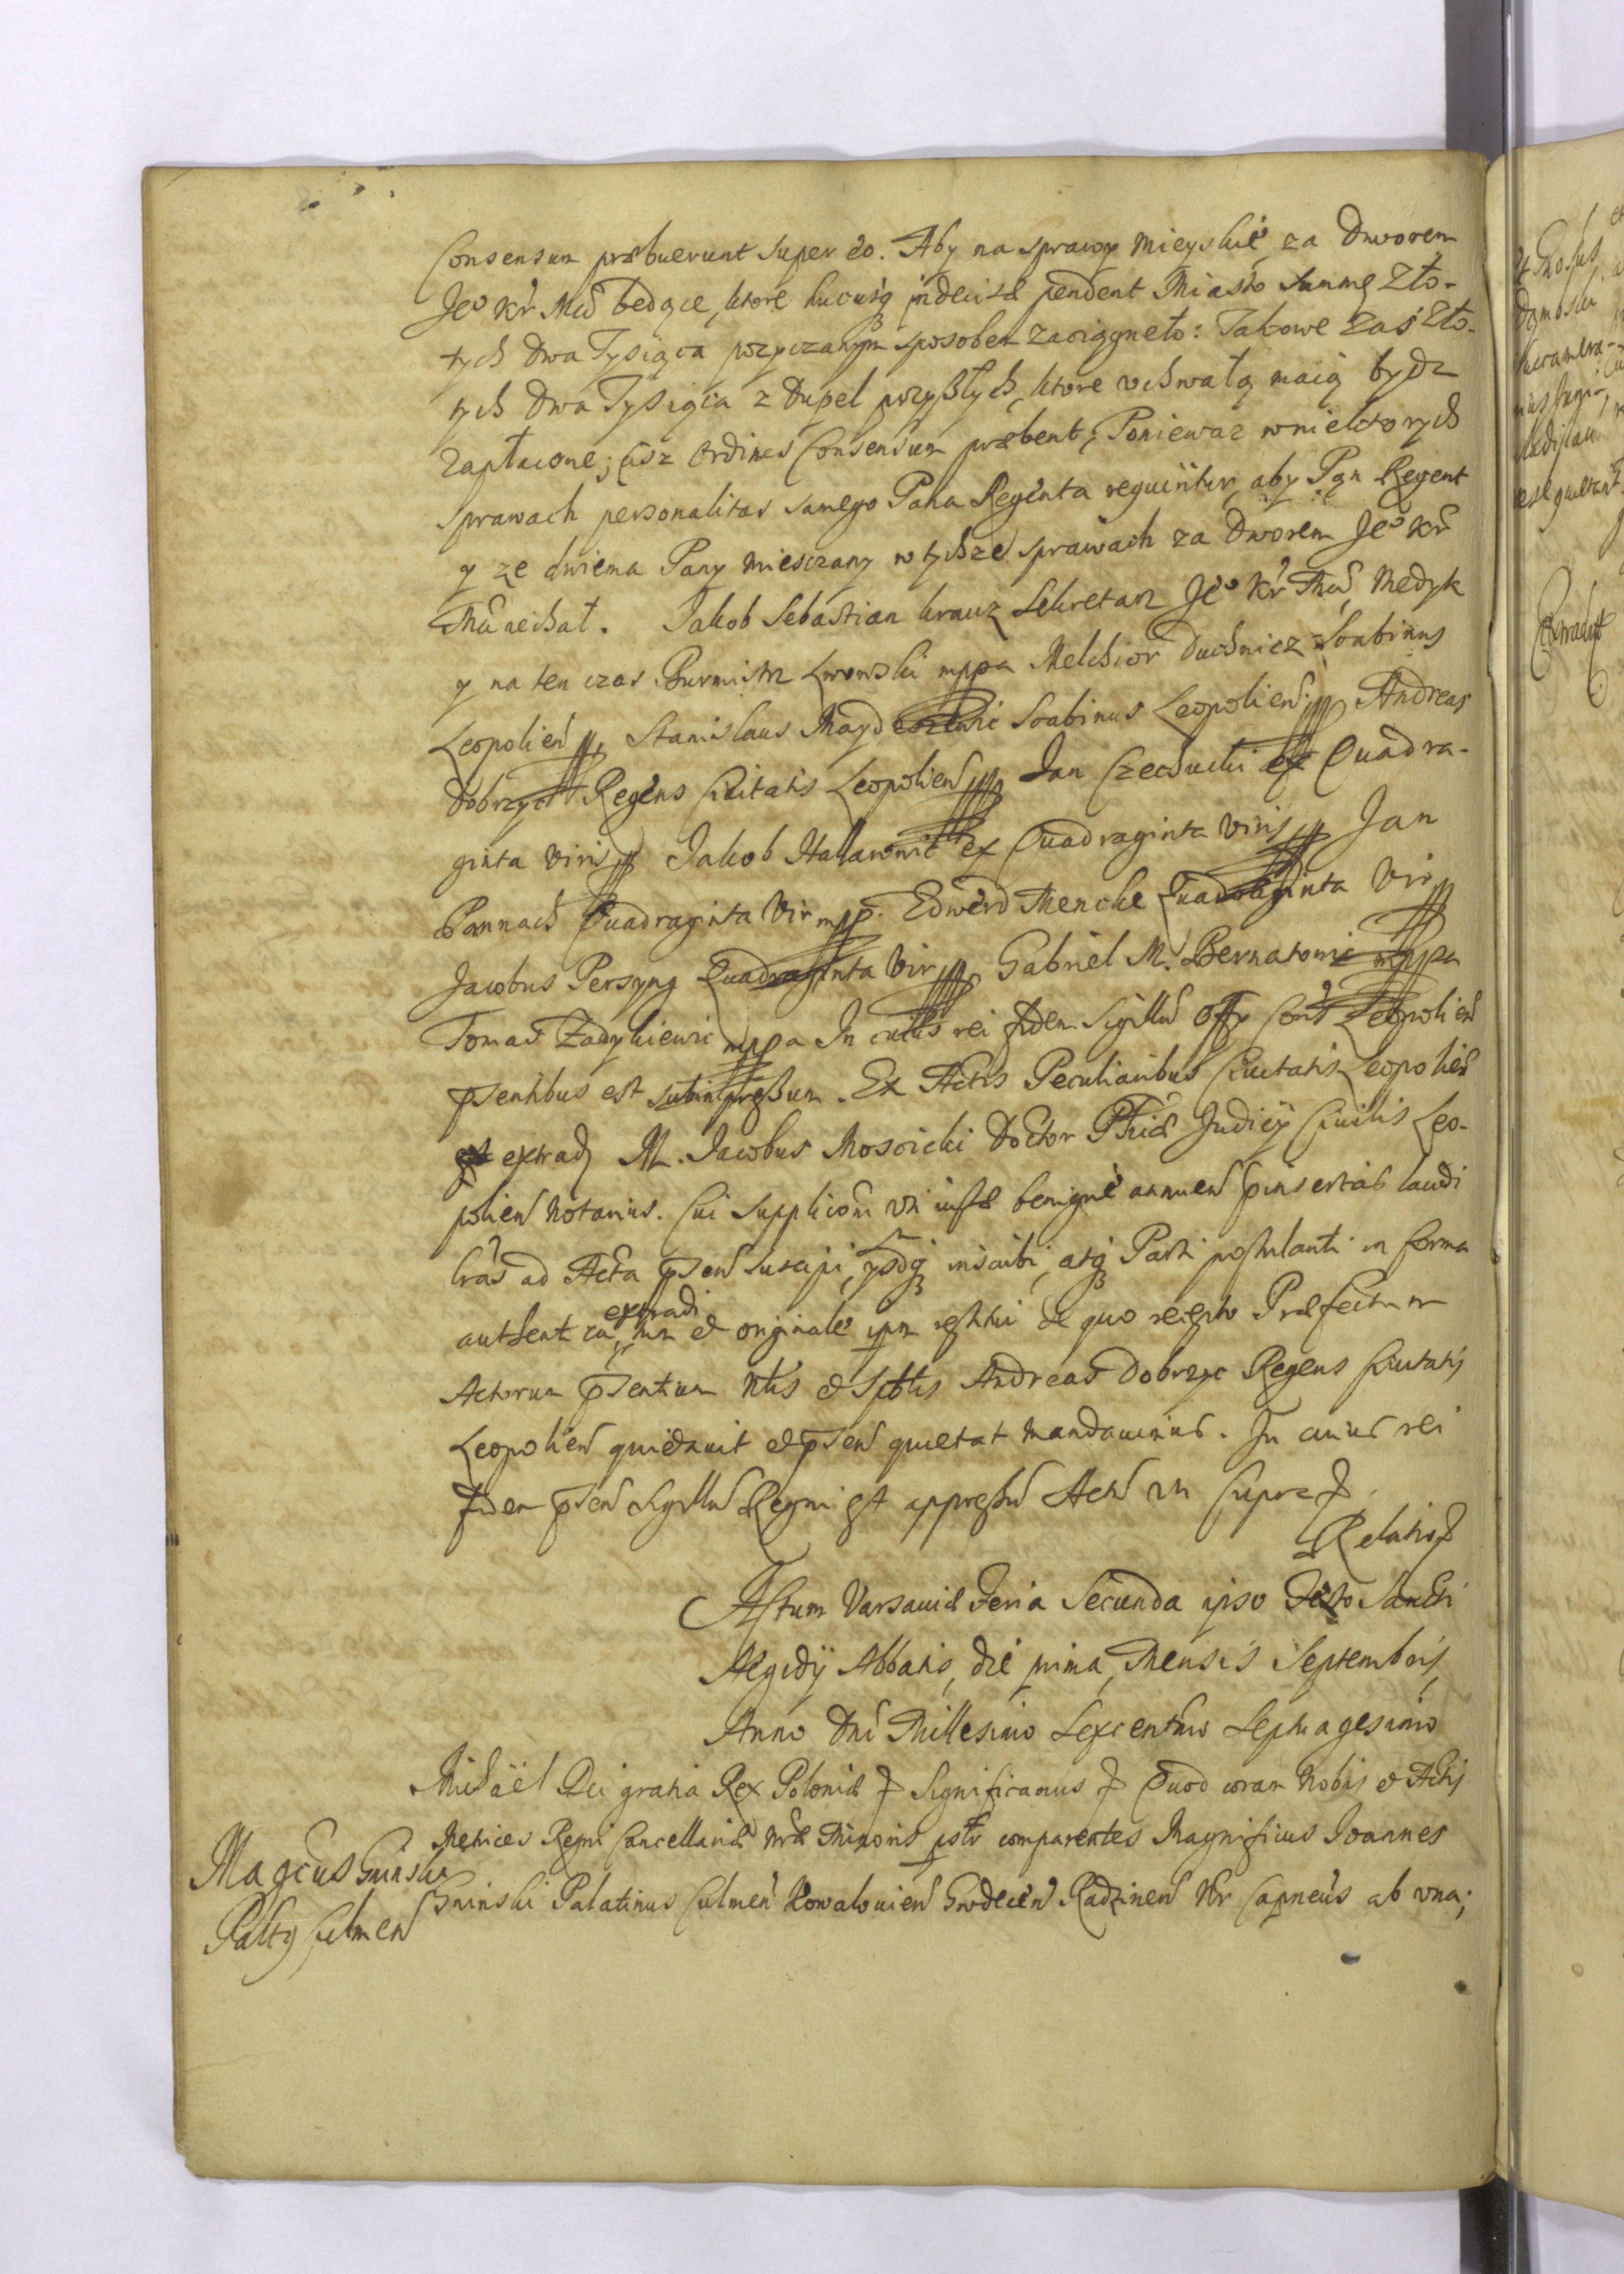 Consensum præbuerunt super eo. Aby na sprawy Mieyskie, za Dworem
Je° Kr Mci będące, ktore hucusq indecisæ pendent Miasto summę Zło-
tych dwa Tysiąca pozyczanym sposobem zaciągneło: Takowe zaś Zło-
tych dwa Tysiąca z dupel przyszłych, ktore uchwałą maią bydz
zapłacone; cisz ordines Consensum præbent, Poniewaz wniektorych
sprawach personalitas samego Pana Regenta requiritur, aby Pan Regent
y ze dwiema Pany Miesczany wtychze sprawach za Dworem Je° Kr
Mci iechał. Jakob Sebastian krauz Sekretarz Je° Kr Mci, Medyk
y na ten czas Burmistrz Lwowski mppa Melchior Duchnicz Scabinus
Leopolien Stanislaus Scabinus Leopolien Andreas
Dobrzyc Regens Ciuitatis Leopolien Jan Czechucki ex Quadra-
ginta viris Jakob ex Quadraginta viris Jan
Pannach Quadraginta Vir mpp. Edwerd Menche Quadraginta Vir
Jacobus Persyng Quadraginta Vir Gabriel M. Bernatowic mppa
Tomas Zadykiewic mppa In cuius rei fidem Sigillu offy Leopolien
psentibus est subimpressum. Ex Actis Peculiaribus Ciuitatis Leopolien
extrad M. Jacobus Moscicki Doctor Judicij Ciuilis Leo-
polien Notarius. Cui supplicõni uti iustæ benigne annuen pinsertas laudi
lras ad Acta psen suscipi, ysdq inscribi, atq Parti postulanti in forma
authentica extradi, tum et originale ipm restitui de quo recepto Præfectum
Actorum psentium Nbis et sptbis Andreas Dobrzyc Regens Ciuitatis
Leopolien quietauit et psen quietat mandauimus. In cuius rei
fidem psen Sigillu Regni est appressu Actu ut supra
Relatio
Actum Varsauiæ Feria Secunda ipso Festo Sancti
Aegidij Abbatis, die prima, Mensis Septembris,
Anno Dni Millesimo Sexcentmo Septuagesimo
Michaël Dei gratia Rex Poloniæ Significamus Quod coram Nobis et Actis
Metrices Regni Cancellariæ Nræ Minoris psolr comparentes Magnificus Joannes
Gninski Palatinus Culmen Kowalouien Grodecen Radzinen Nr Capneus ab una;
Magcus Gninski
Paltg Culmen